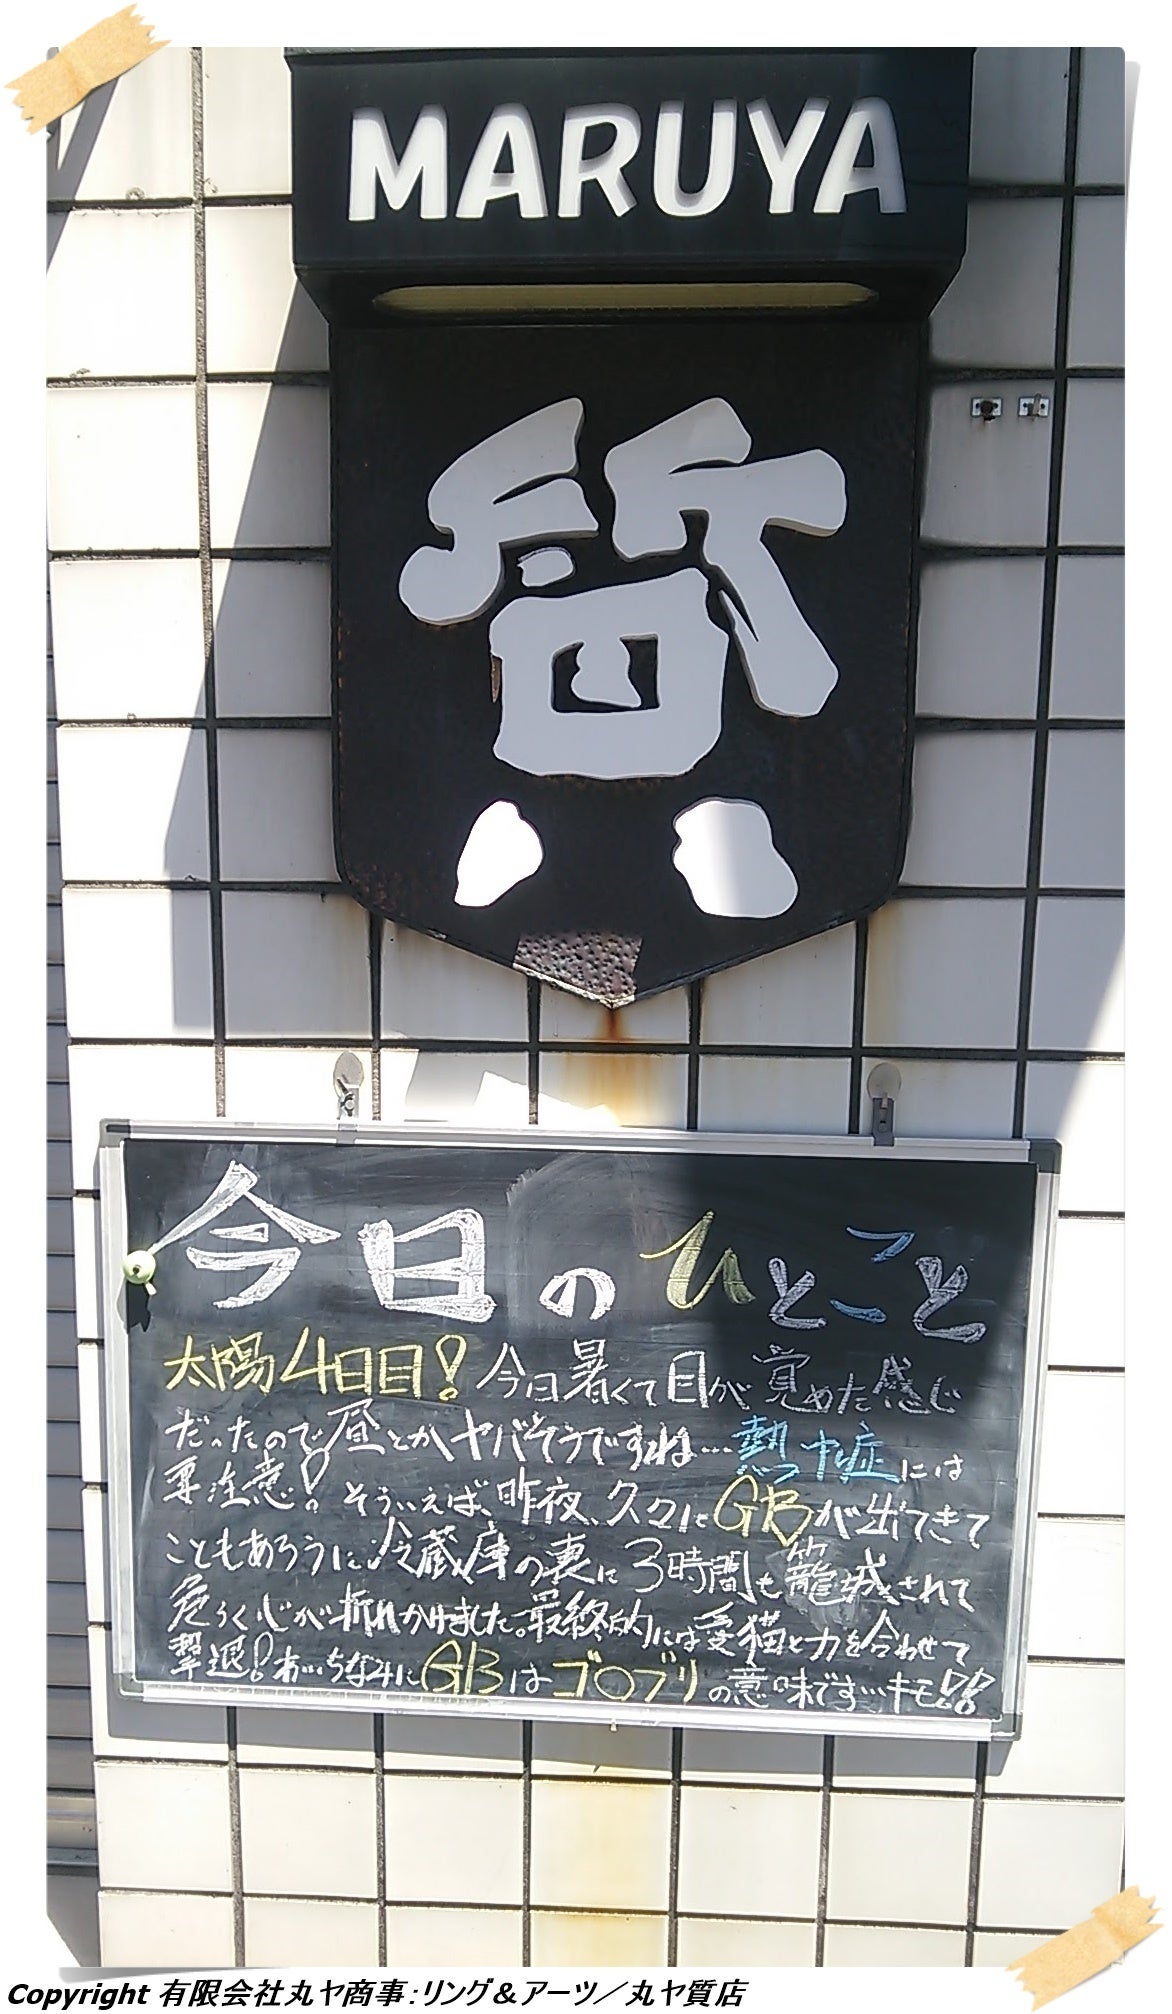 MARUYA
質
今日のひとこと
太陽4日目!今日暑くて目が覚めた感じ
だったので昼とかヤバそうですね…熱中症には
要注意!そういえば、昨夜、久々にGBが出てきて
こともあろうに冷蔵庫の裏に3時間も籠城されて
危うく心が折れかけました。最終的には愛猫と力を合わせて
撃退!あ…ちなみにGBはゴ○ブリの意味です…キモ!!
Copyright 有限会社丸ヤ商事:リング&アーツ/丸ヤ質店